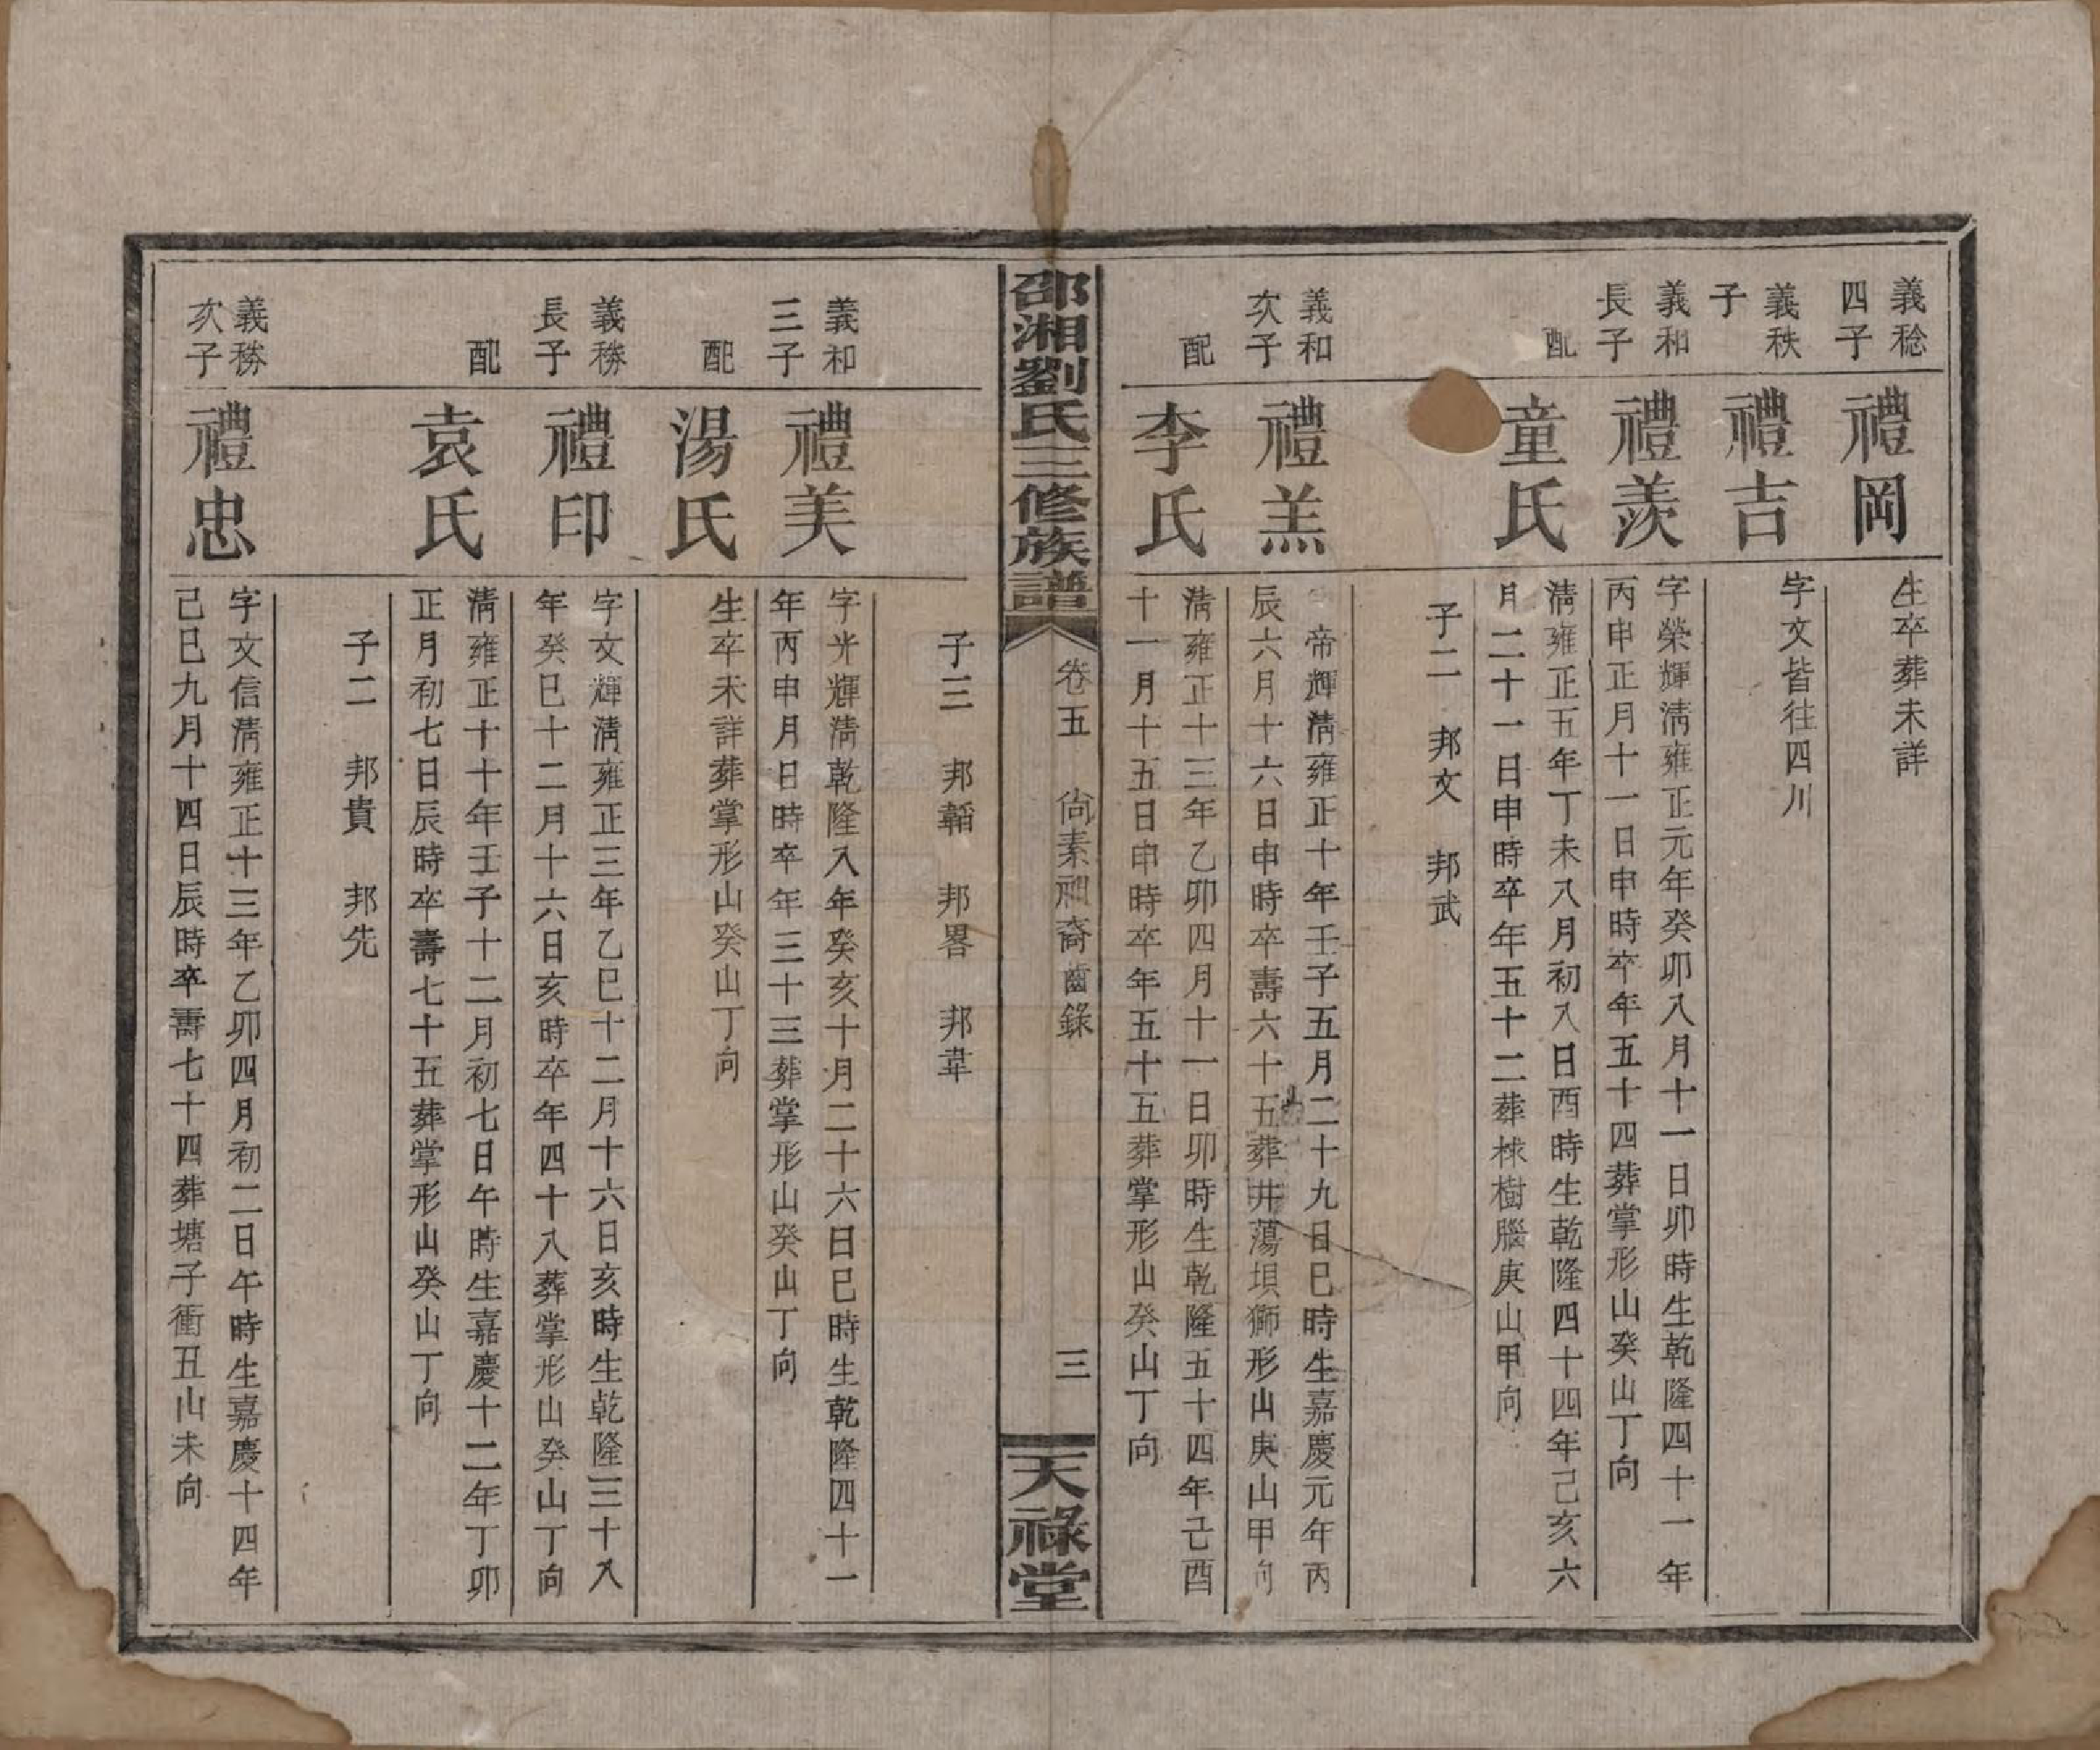 義稔
四子
禮岡
生卒葬未詳
義秩
子
禮吉
字文皆往四川
義和
長子
禮羨
字榮輝淸雍正元年癸卯八月十一日卯時生乾隆四十一年
丙申正月十一日申時卒年五十四葬掌形山癸山丁向
配
童氏
淸雍正五年丁未八月初八日酉時生乾隆四十四年己亥六
月二十一日申時卒年五十二葬樑樹腦庚山甲向
子二 邦文 邦武
義和
次子
禮羔
帝輝淸雍正十年壬子五月二十九日巳時生嘉慶元年丙
辰六月十六日申時卒壽六十五葬井蕩垻獅形山庚山甲向
配
李氏
淸雍正十三年乙卯四月十一日卯時生乾隆五十四年己酉
十一月十五日申時卒年五十五葬掌形山癸山丁向
邵湘劉氏三修族譜
卷五 尙素祠裔齒錄
三
天祿堂
子三 邦韜 邦畧 邦韋
義和
三子
禮美
字光輝淸乾隆八年癸亥十月二十六日巳時生乾隆四十一
年丙申月日時卒年三十三葬掌形山癸山丁向
配
湯氏
生卒未詳葬掌形山癸山丁向
義務
長子
禮印
字文輝淸雍正三年乙巳十二月十六日亥時生乾隆三十八
年癸巳十二月十六日亥時卒年四十八葬掌形山癸山丁向
配
袁氏
淸雍正十十年壬子十二月初七日午時生嘉慶十二年丁卯
正月初七日辰時卒壽七十五葬掌形山癸山丁向
子二 邦貴 邦先
義務
次子
禮忠
字文信淸雍正十三年乙卯四月初二日午時生嘉慶十四年
己巳九月十四日辰時卒壽七十四葬塘子衝丑山未向